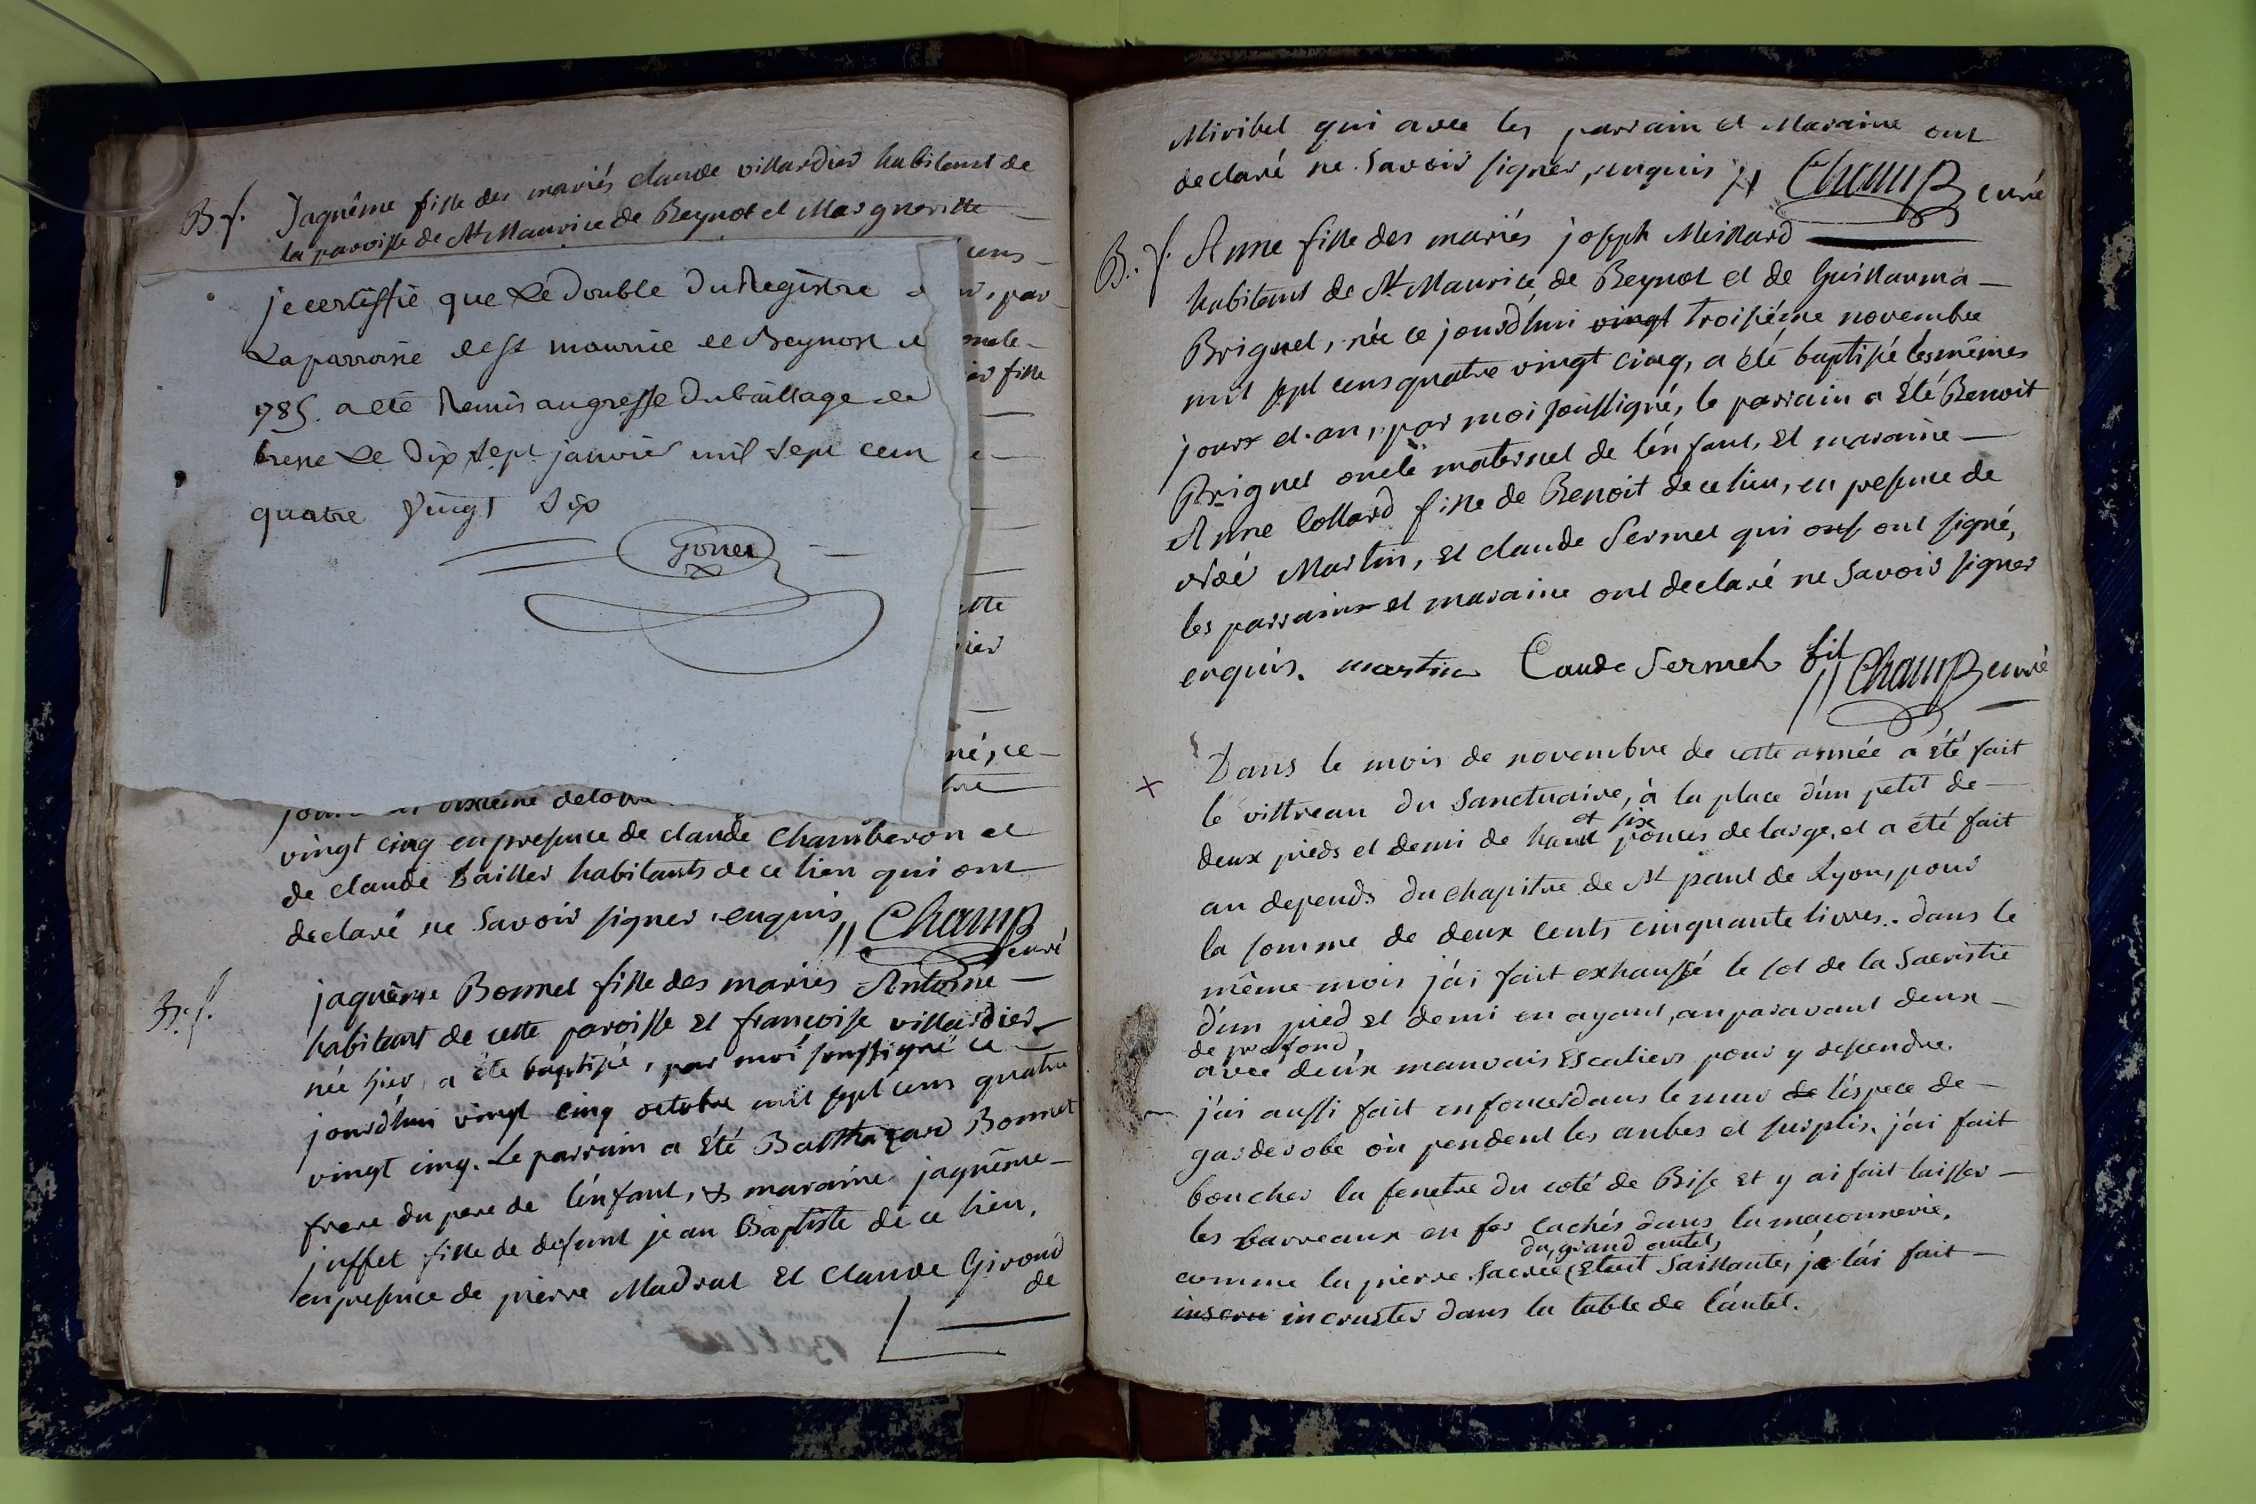 B. f. Jaquême fille des mariés claude villardier habitant de
la paroisse de St Maurice de Beynot et Margueritte
je certiffie que Le Double Du Registre
La parroisse de st maurice de Beynost
1785. a été Remis au greffe Du baillage de
bresse Le Dix sept janvier mil sept cent
quatre vingt six
Goner
cens
par
fille
ette
né, ce
vingt cinq en presence de claude Chamberon et
de claude Bailler habitants de ce lieu qui ont
declaré ne savoir signer, enquis // Champ
curé
B. f. jaquême Bonnet fille des mariés Antoine
habitant de cette paroisse et francoise villardier
née hier, a été baptisée, par moi soussigné ce
jourd'hui vingt cinq octobre mil sept cens quatre
vingt cinq. Le parrain a été Balthazard Bonnet
frere du pere de l'enfant, & maraine jaquême
juffet fille de defunt jean Baptiste de ce lieu,
en presence de pierre Madrat et claude Giroud
de
Miribel qui avec les parrain et Maraine ont
declaré ne savoir signer, enquis // Champ curé
B. f. Anne fille des mariés joseph Meissard
habitant de St Maurice de Beynot et de Guillauma
Brignet, née ce jourd'hui vingt troisiéme novembre
mil sept cens quatre vingt cinq, a été baptisée les mêmes
jours et an, par moi soussigné, le parrain a été Benoit
Brignet oncle maternel de l'enfant, et maraine
Anne Collard fille de Benoit de ce lieu, en presence de
Martin, et claude Sermet qui ont signé,
les parrain et maraine ont declaré ne savoir signer
enquis. martin Caude Sermet fil // Champ curé
x Dans le mois de novembre de cette année a été fait
le vittreau du Sanctuaire, à la place d'un petit de
et six
deux pieds et demi de haut pouces de large, et a été fait
au depends du chapitre de St paul de Lyon, pour
la somme de deux cents cinquante livres. dans le
même mois j'ai fait exhaussé le sol de la Sacristie
d'un pied et demi en ayant, auparavant deux
de profond,
avec deux mauvais escaliers pour y descendre.
j'ai aussi fait enfoncer dans le mur de l'espece de
garderobe où pendent les aubes et surplis. j'ai fait
boucher la fenetre du coté de Bise et y ai fait laisser
les barreaux en fer cachés dans la maconnerie.
du grand autel,
comme la pierre sacrée etait saillante, je l'ai fait
inscru incruster dans la table de l'autel.